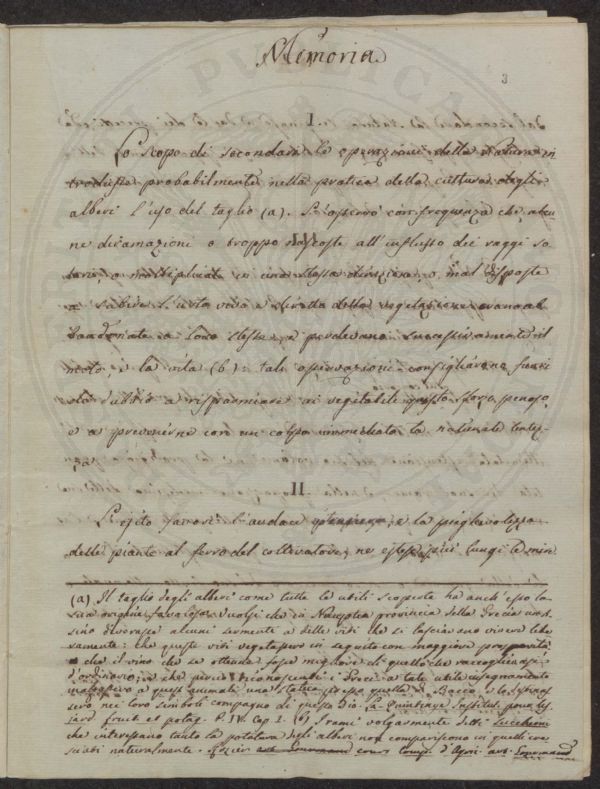 Memoria
3
I
Lo scopo di secondare le operazioni della natura in
trodusse probabilmente nella pratica della cultura degli
alberi l'uso del taglio (a). S'osservò con frequenza che alcu
ne diramazioni o troppo nascoste all'influsso dei raggi so
lari, o moltiplicate in una stessa direzione, o mal disposte
a subire l'urto vivo e diretto della vegetazione erano ab
bandonate a loro stesse, e perdevano successivamente il
moto, e la vita (b): tali osservazioni consigliarono
d'altrio a risparmiare ai vegetabili questo sforzo penoso,
e a prevenirne con un colpo immediato la naturale
II
L'esito favorì l'audace e la pieghevolezza
delle piante al ferro del coltivatore, ne estese più lungi le mire
(a) Il taglio degli alberi come tutte le utili scoperte ha anch'esso la
sua origine favolosa. Vuolsi che in Nauplia provincia della Grecia un a
sino divorasse alcuni sermenti a delle viti che si lasciavano vivere libe
ramente: che queste viti vegetassero in seguito con maggiore prosperità
e che il vino che se ottenne fosse migliore di quello che raccoglievasi
d'ordinario; e che perciò riconoscenti i Greci a tale utile insegnamento
a questi animali una statua presso quella di Bacco, e lo
sero nei loro simboli compagno di questo Dio. La Quintinye Institut. pour les
jard fruit. et potag. P. IV. Cap. 2. (b) I rami volgarmente detti Succhioni
che interessano tanto la potatura degli alberi non compariscono in quelli cre
sciuti naturalmente. Rozier cours comp. d'Agric. art. Gourmand